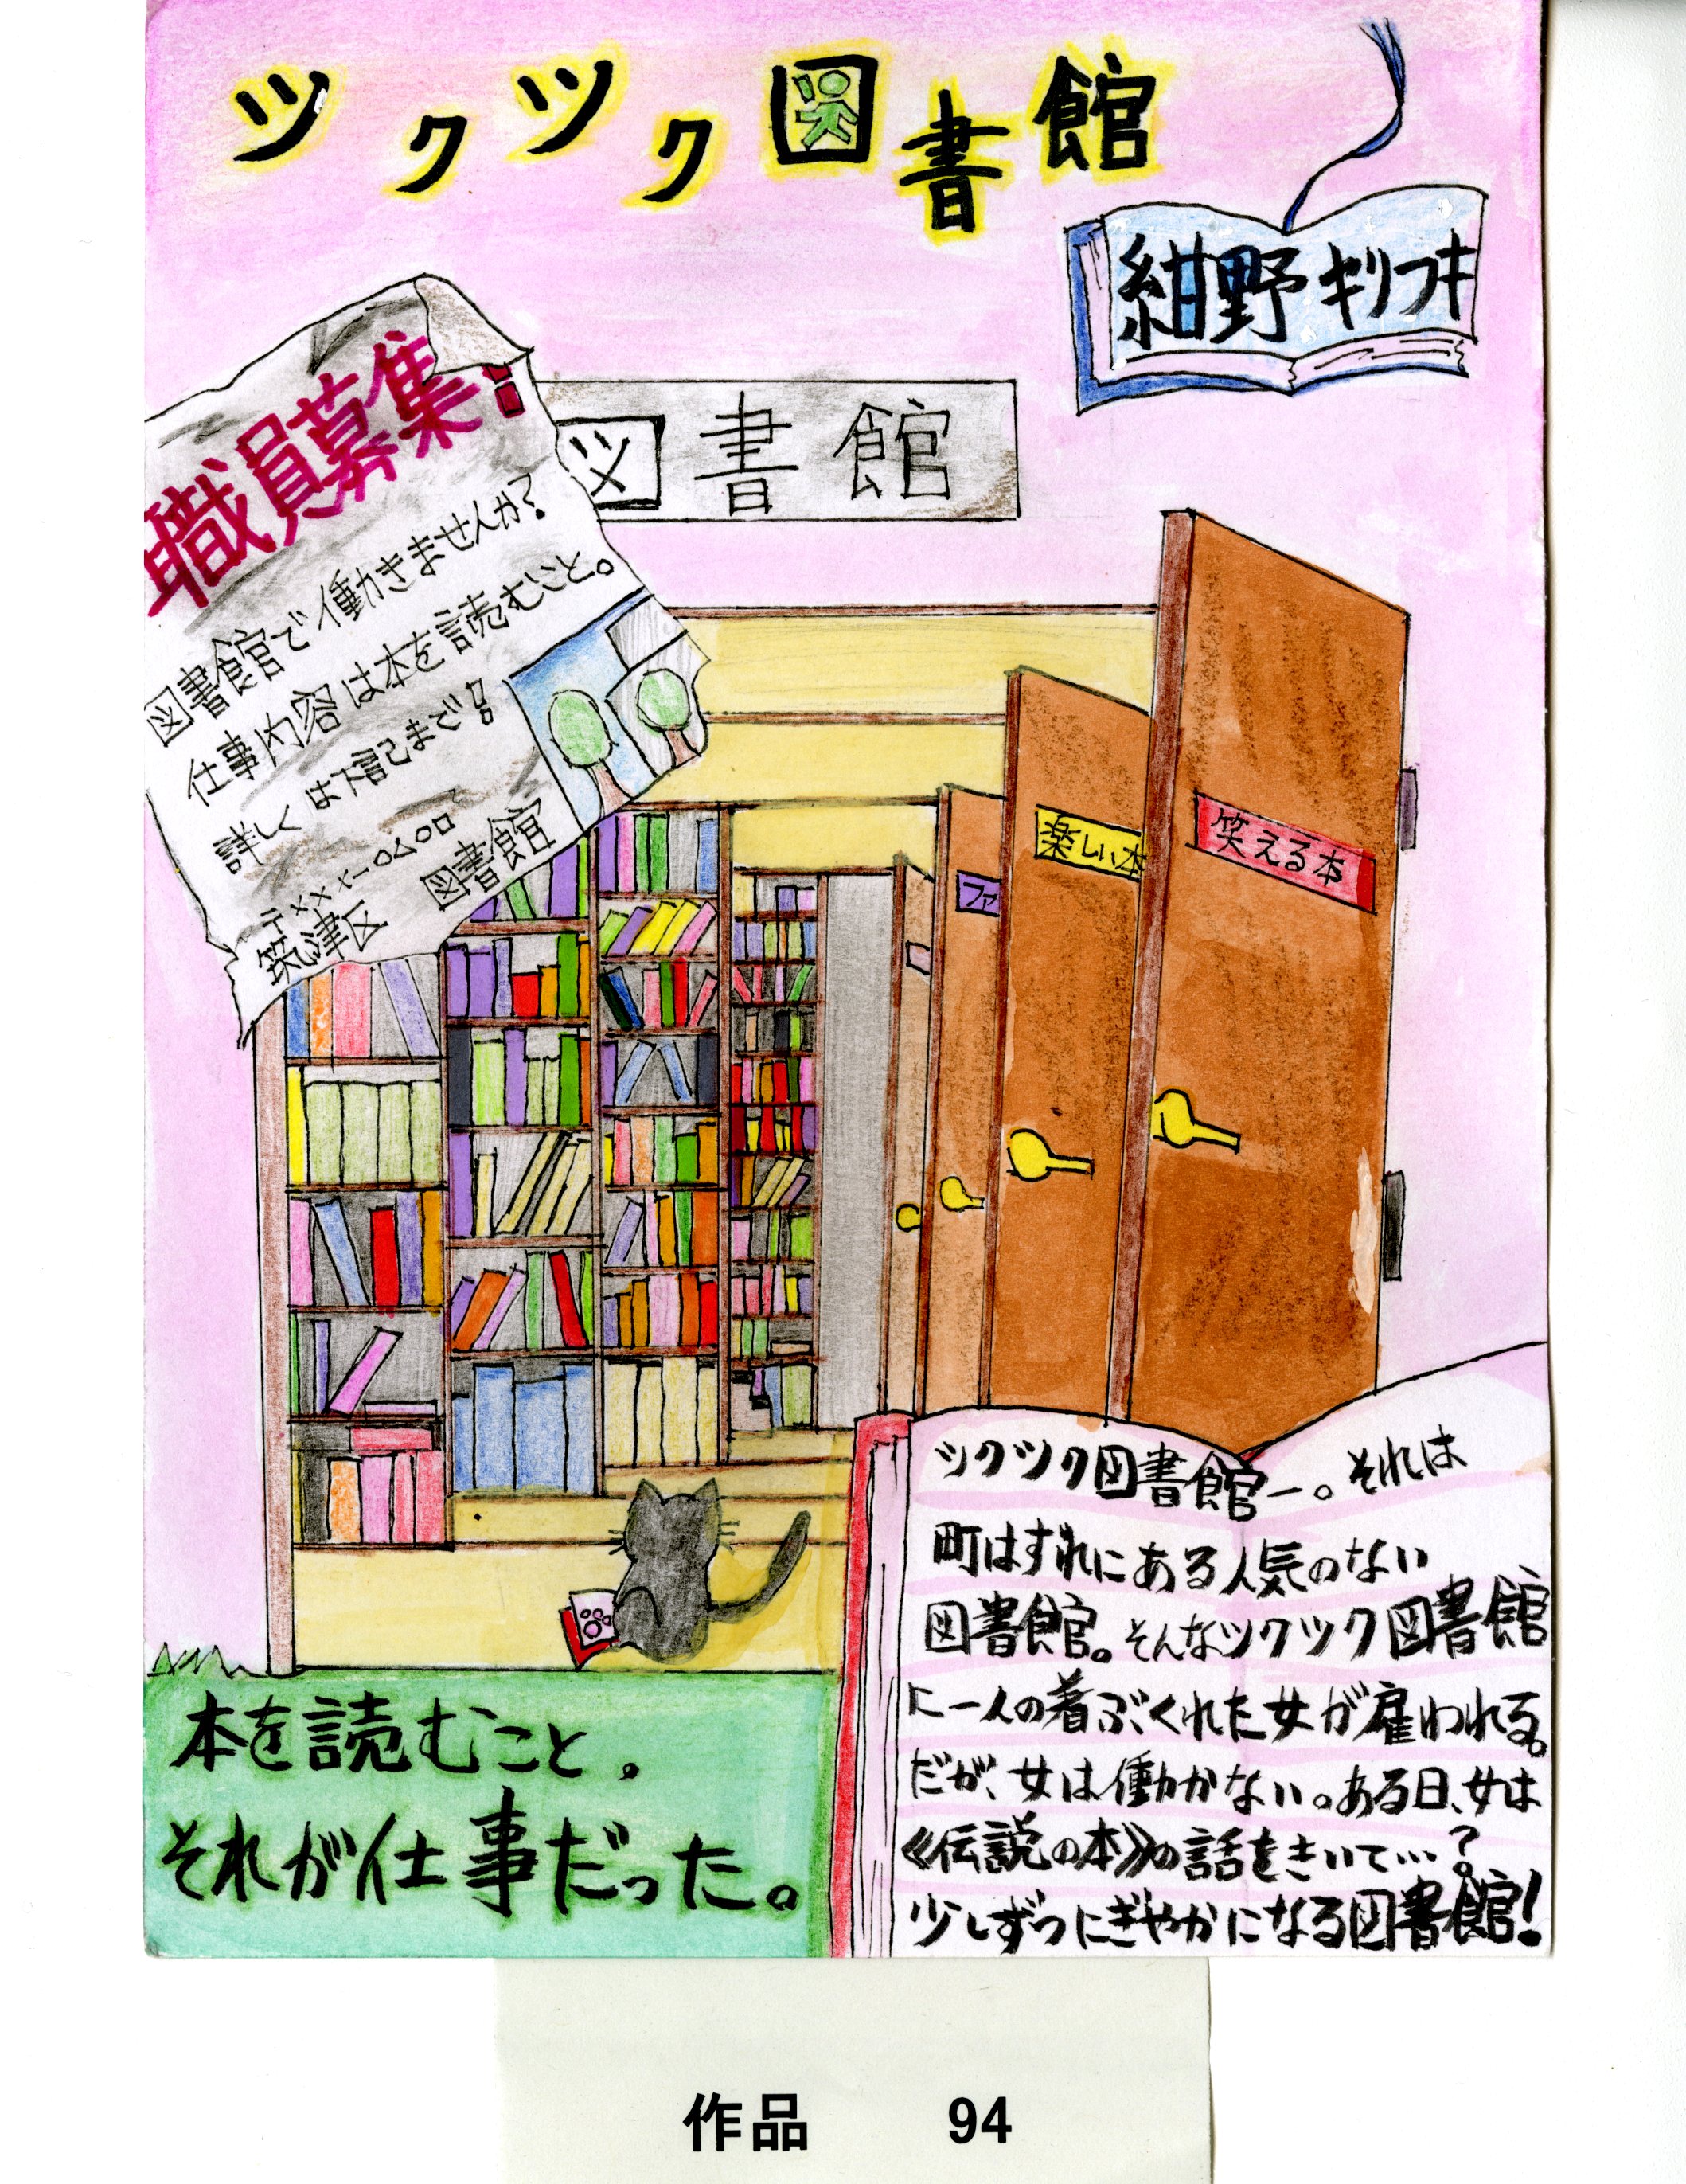 ツクツク図書館
紺野キリフキ
職員募集!
図書館で働きませんか?
仕事内容は本を読むこと。
詳しくは下記まで
筑津区 図書館
図書館
笑える本
楽しい本
ファ
ツクツク図書館ー。それは
町はずれにある人気のない
図書館。そんなツクツク図書館
に一人の着ぶくれた女が雇われる。
だが、女は働かない。ある日、女は
《伝説の本》の話をきいて…?
少しずつにぎやかになる図書館!
本を読むこと。
それが仕事だった。
作品 94